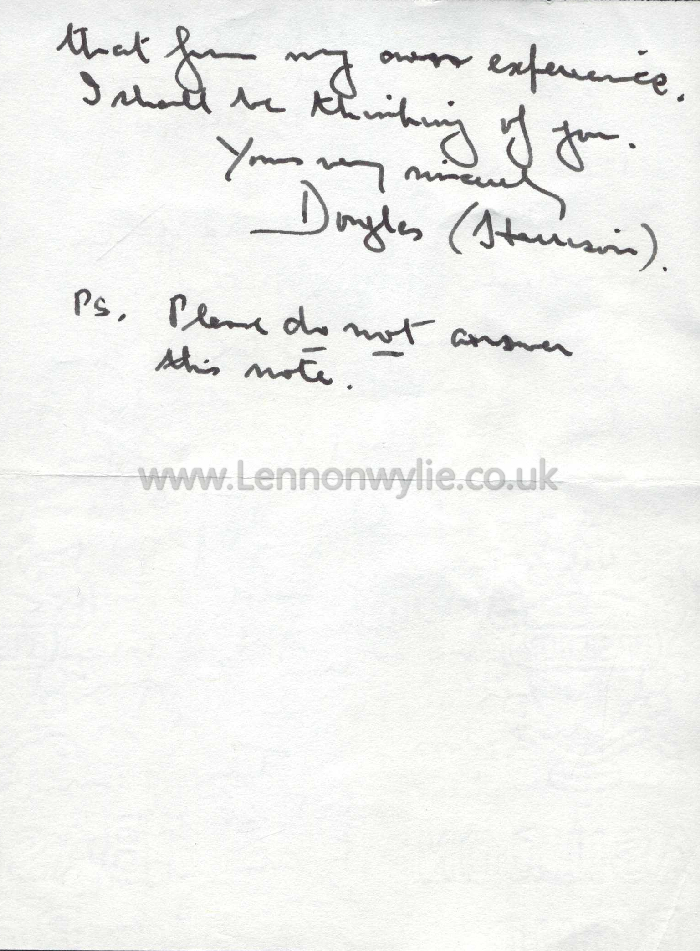 that from my own experience.
I shall be thinking of you.
Yours very sincerely
Douglas (Harrison).
Ps. Please do not answer
this note.
www.Lennonwylie.co.uk